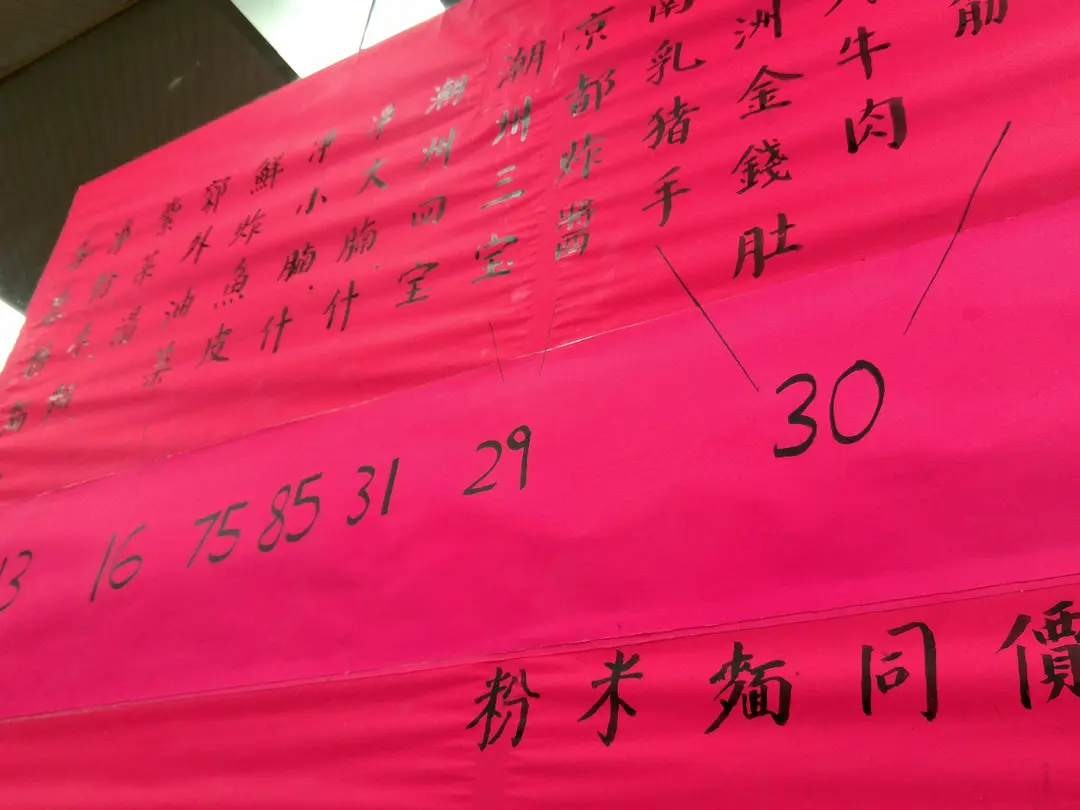 筋
牛肉
洲金錢肚
南乳猪手
京都炸醬
潮州三宝
潮州四宝
净大腩什
净小腩什
鮮炸魚皮
郊外油菜
紫菜湯
30
29
31
85
75
16
13
粉米麵同價